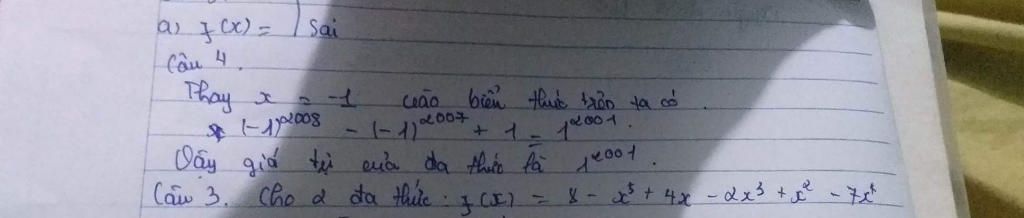 a) f(x) = | Sai
Câu 4.
Thay x = -1 vào biến thức trên ta có.
(-1)^2008 - (-1)^2007 + 1 = 1^2001.
Vậy giá trị của đa thức là 1^2001.
Câu 3. Cho 2 đa thức: f(x) = 8 - x^5 + 4x - 2x^3 + x^2 - 7x^4